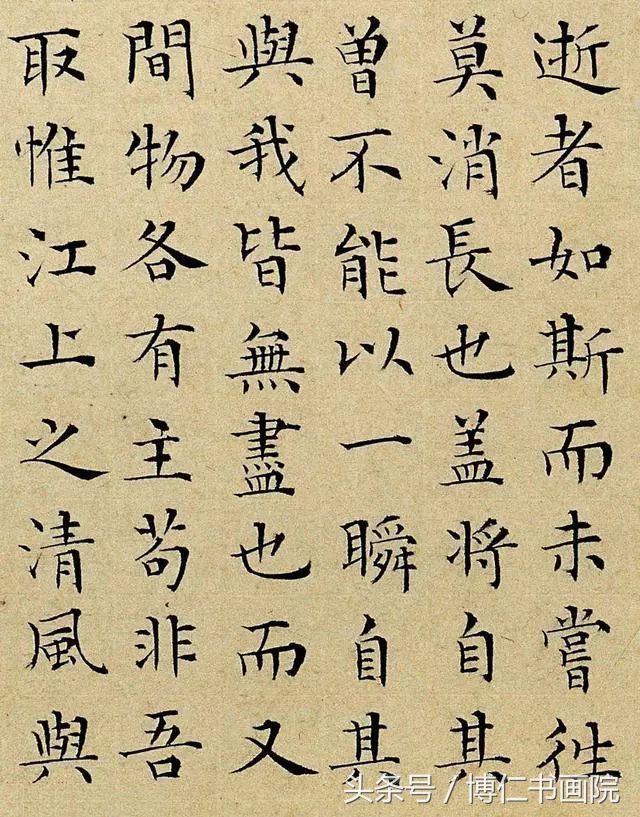 逝者如斯而未嘗徃
莫消長也盖将自其
曽不能以一瞬自其
與我皆無盡也而又
間物各有主苟非吾
取惟江上之清風與
头条号 / 博仁书画院